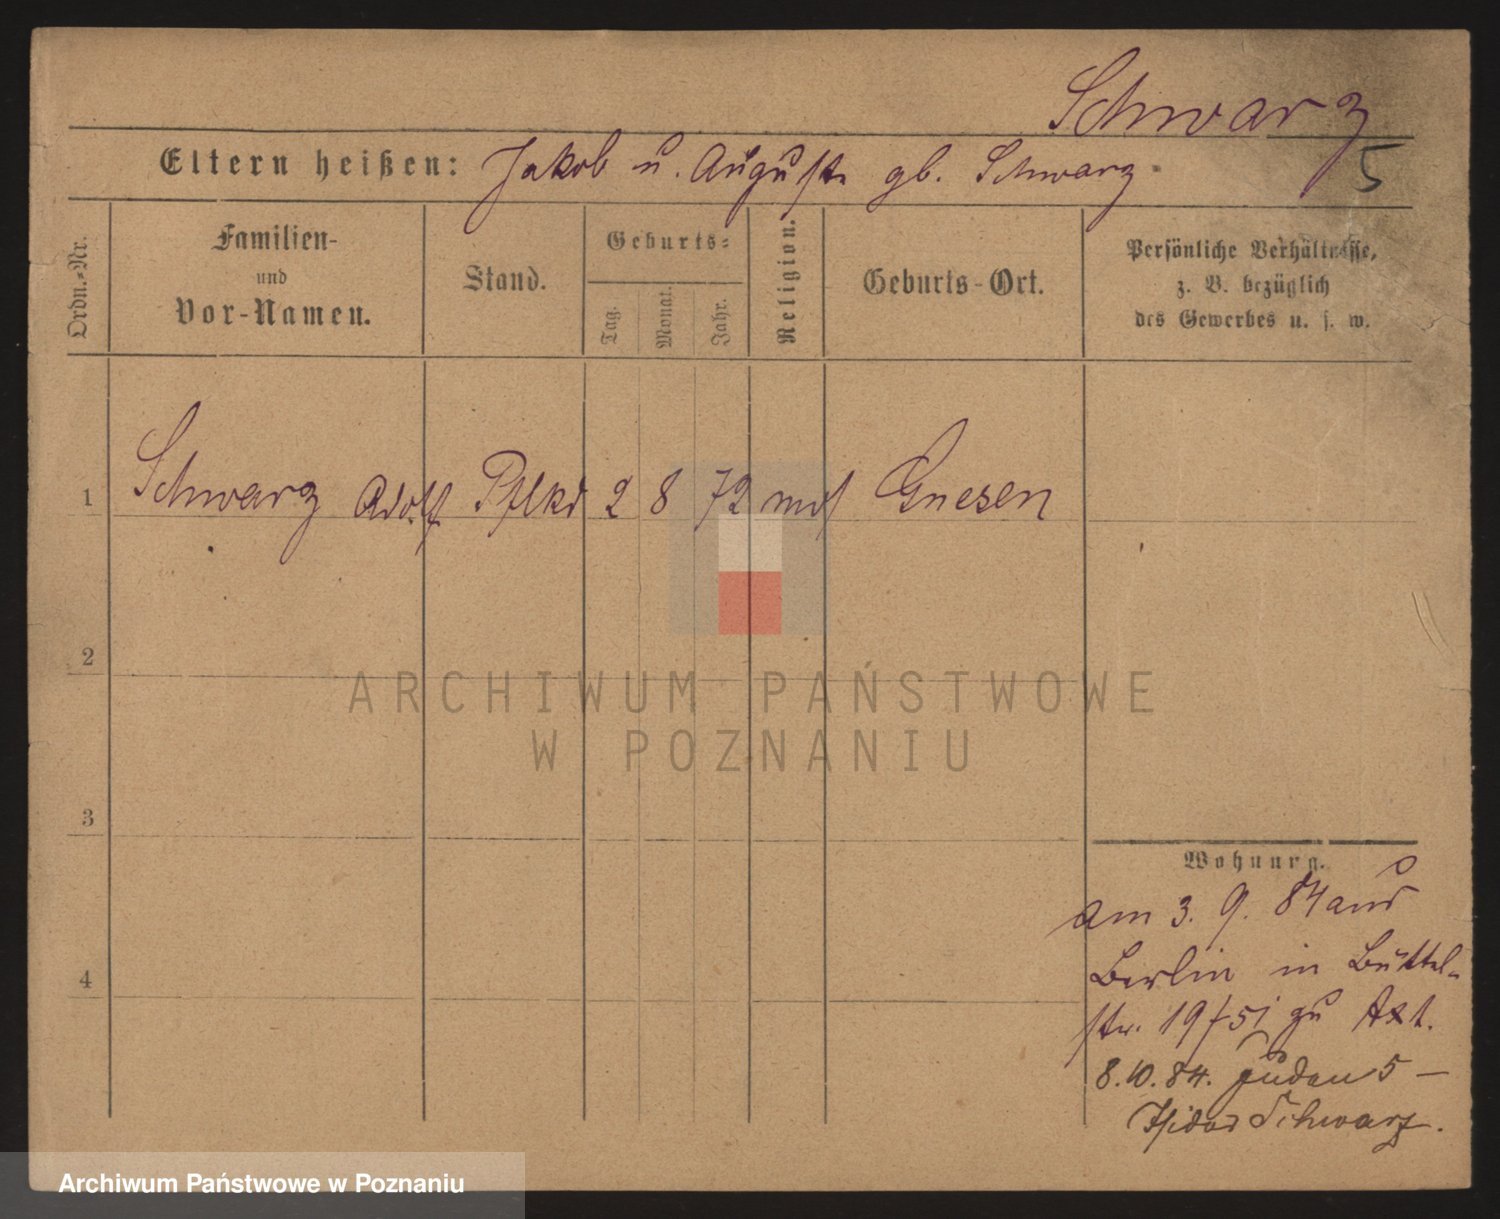 Schwarz
Eltern heißen: Jakob u. Auguste gb. Schwarz
5
Ordn.-Nr.
Familien-
und
Vor-Namen.
Stand.
Geburts-
Tag.
Monat.
Jahr.
Religion.
Geburts-Ort.
Persönliche Verhältnisse,
z. B. bezüglich
des Gewerbes u. s. w.
1 Schwarz Adolf Pflkd 2 8 72 mos Gnesen
2
ARCHIWUM PAŃSTWOWE
W POZNANIU
3
Wohnung.
am 3. 9. 84 aus
Berlin in Büttel-
str. 19/51 zu Axt.
4
8.10.84. Juden 5 —
Isidor Schwarz.
Archiwum Państwowe w Poznaniu